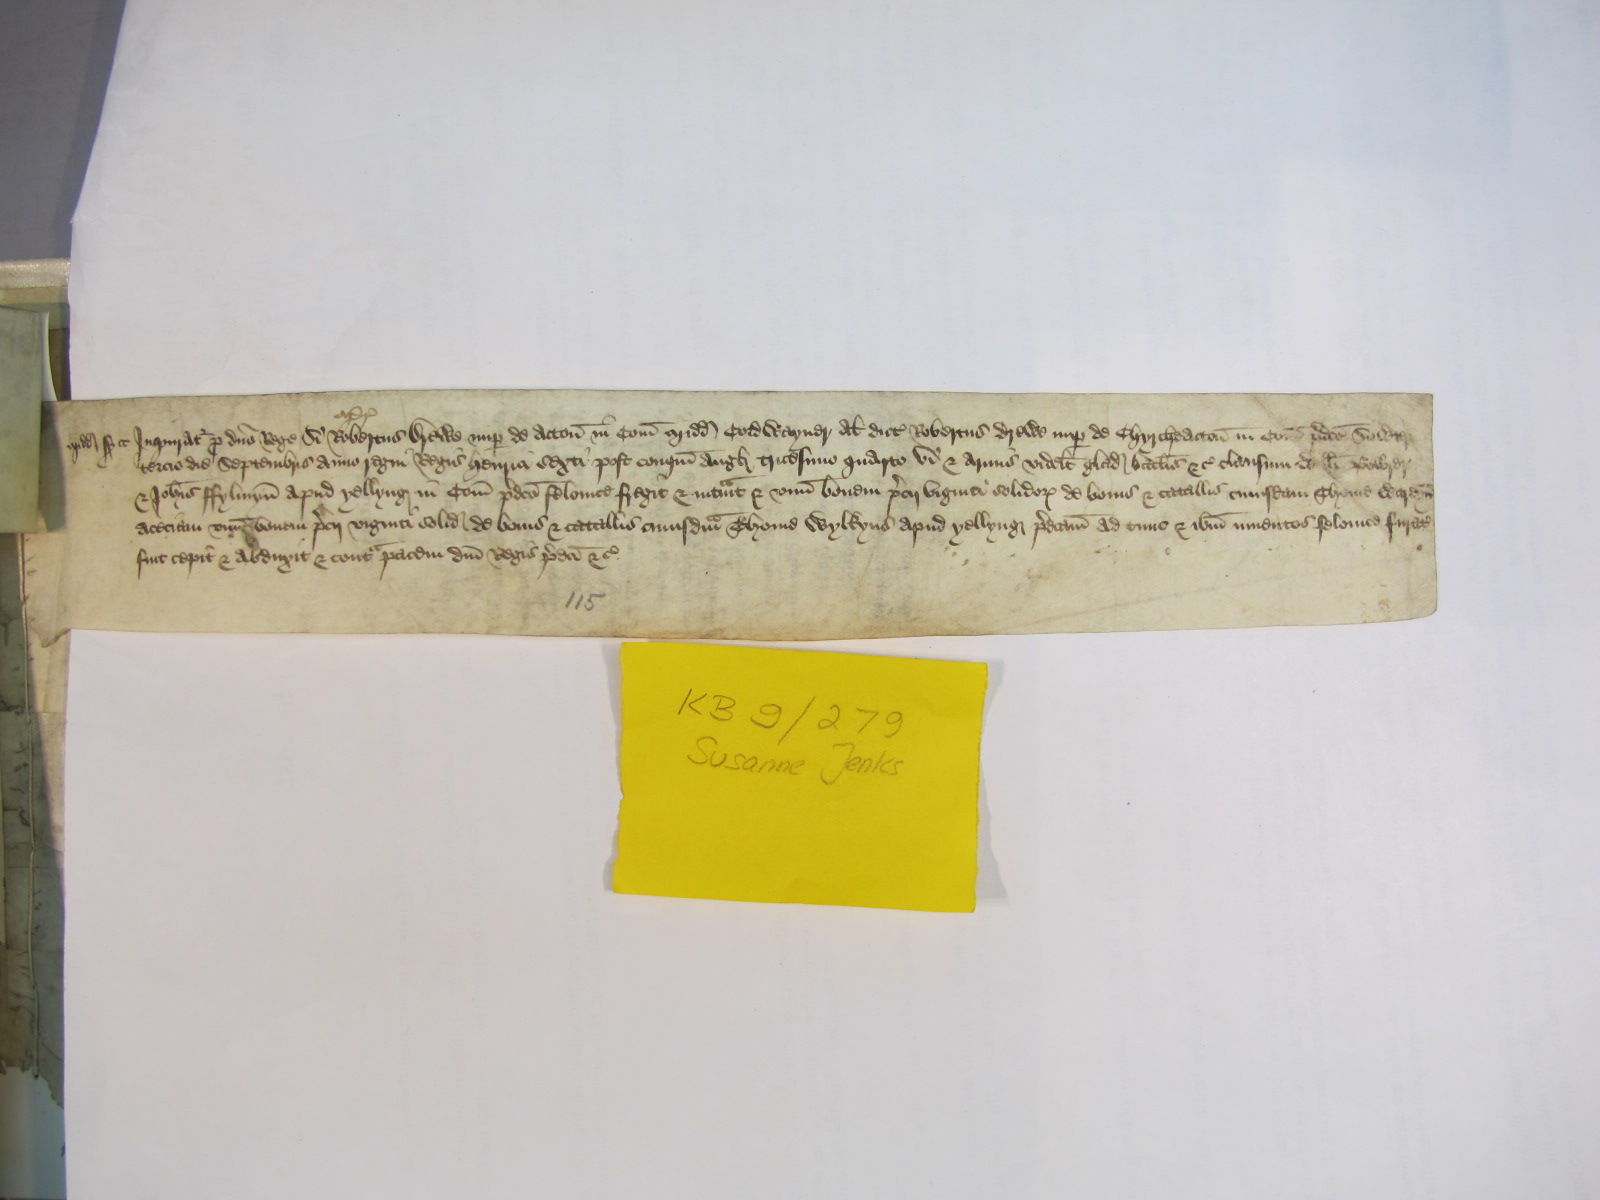 Midd ss
Inquirat' p dno Rege si Robertus Drewe nup de Acton in Com Midd Cordewayner al dict Robertus Drewe nup de Chyrcheacton in Com pdco
tercio die Septembris anno regni Regis Henrici Sexti post conqm Angl tricesimo quarto vi & armis videlt glad baclis &c clausum
& Johis ffylmyn apud yellyng in Com pdco felonice fregit & intavit & unu bovem pcij viginti solidor de bonis & catallis cuiusdam Thome
acecitam unu bovem pcij viginti solid de bonis & catallis cuiusdm Thome Wylkyns apud yellyng pdcam ad tunc & ibm inventos felonice furat
fuit cepit & abduxit & cont pacem dni Regis pdci &c
115
KB 9/279
Susanne Jenks